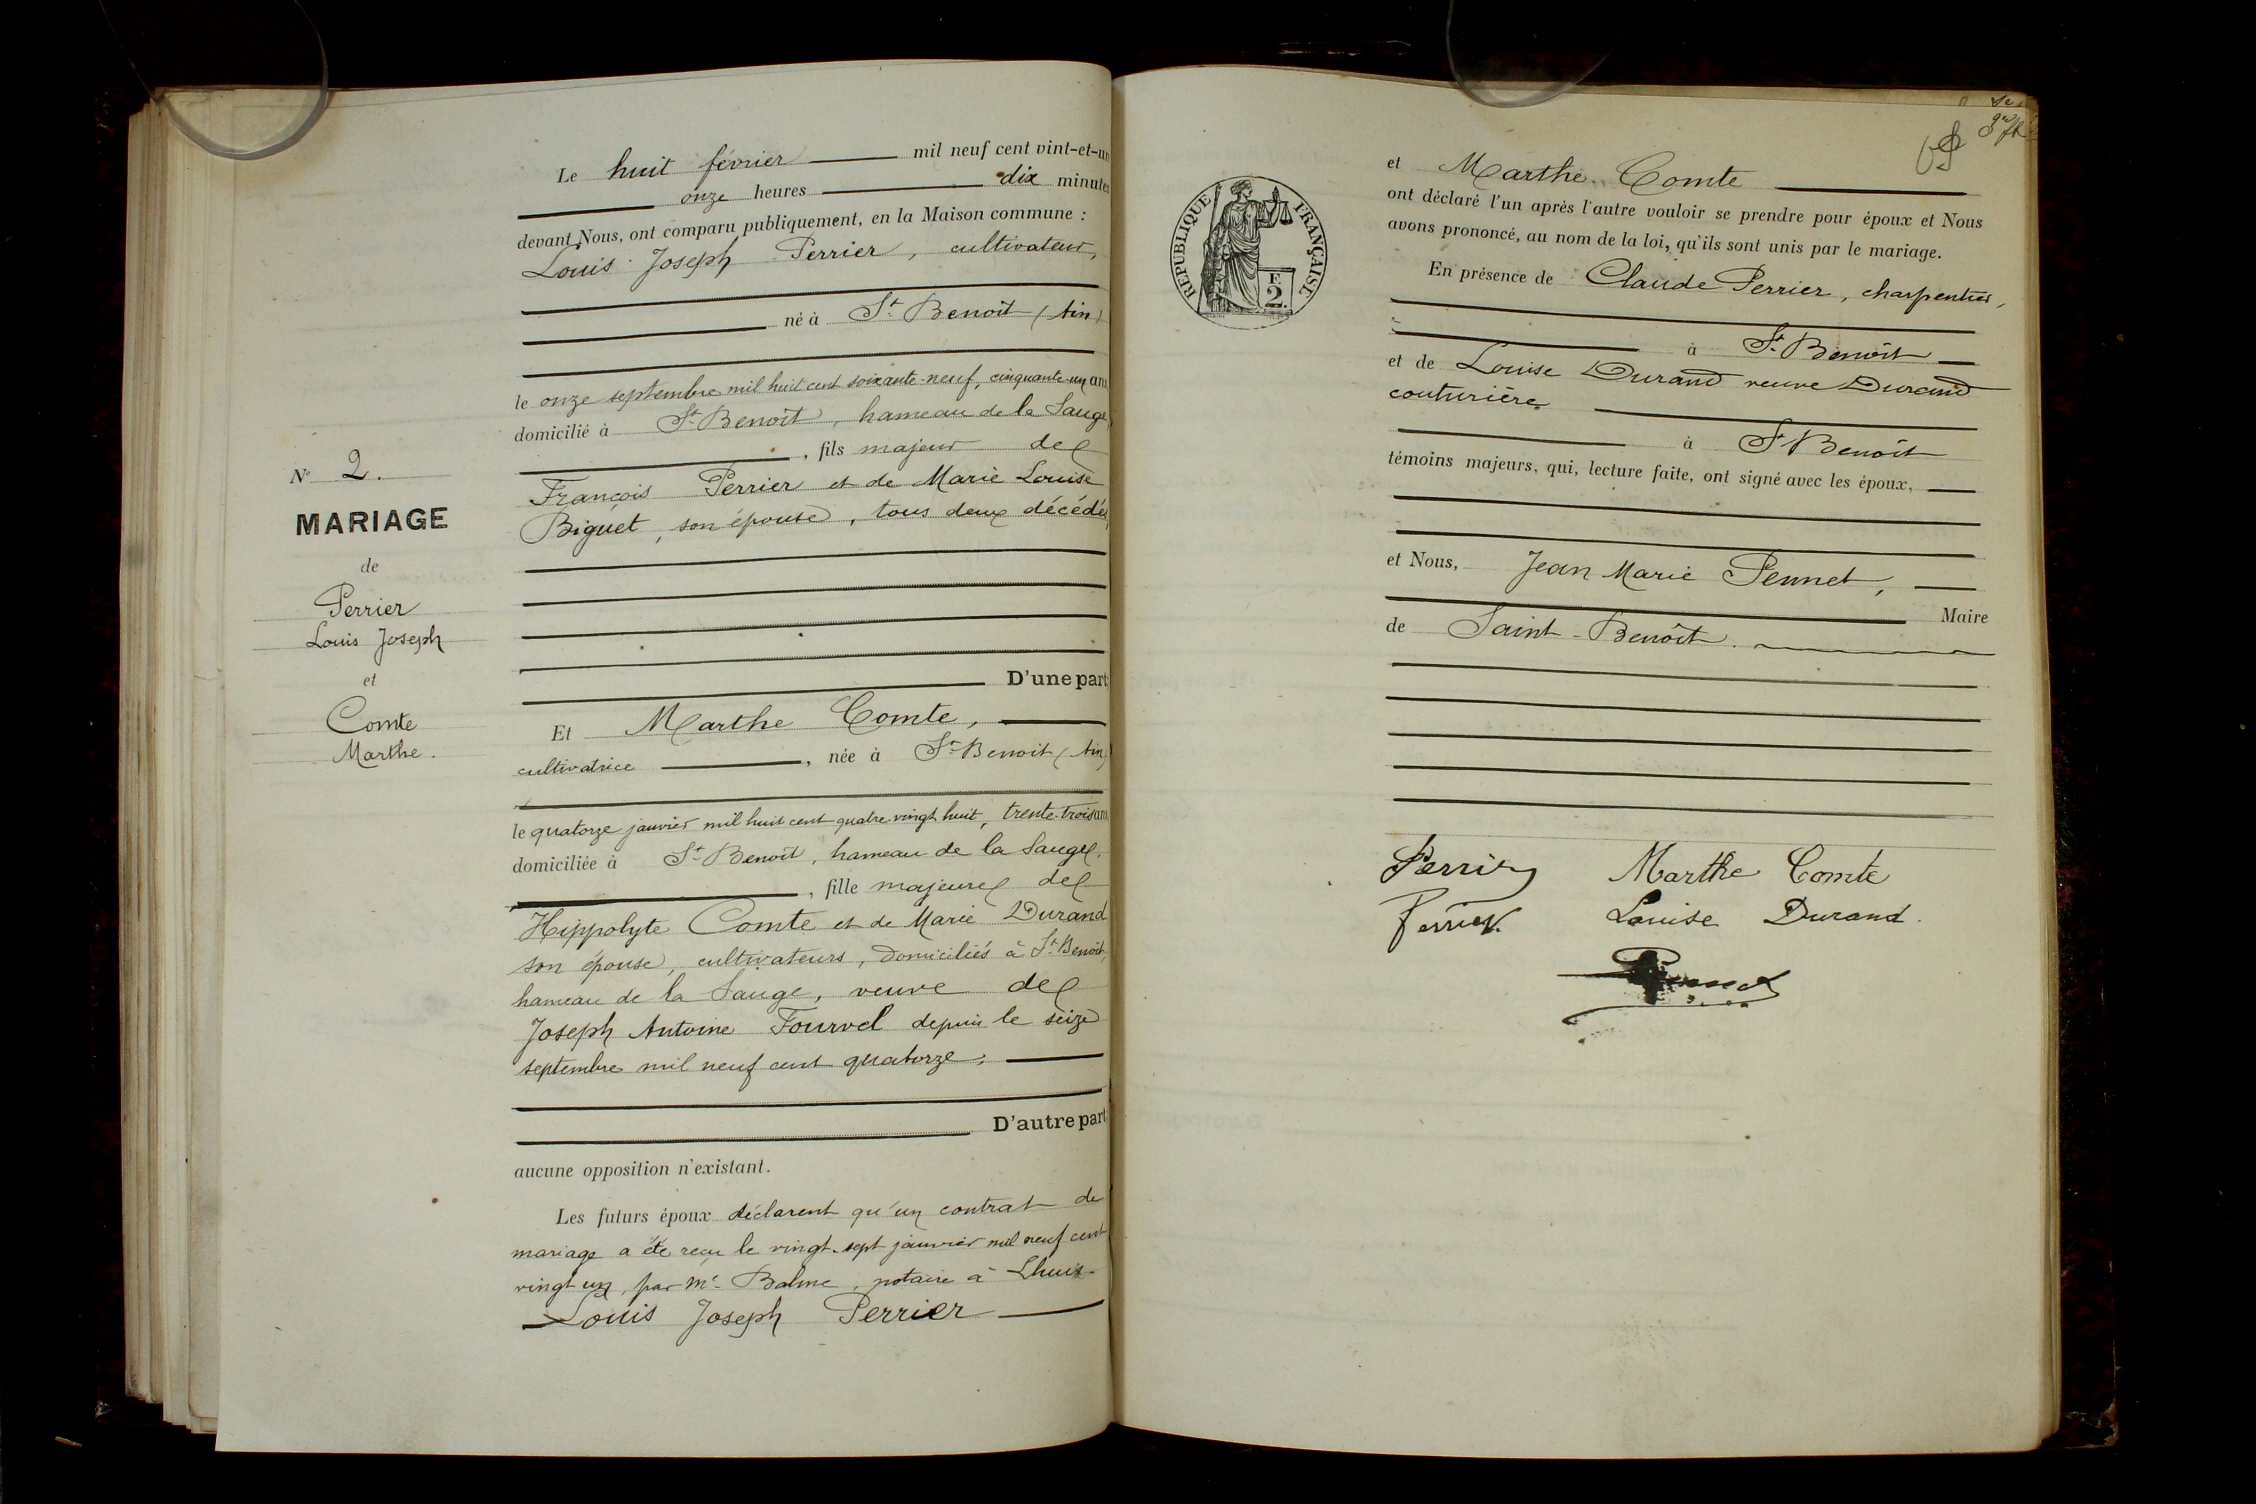 Le huit février mil neuf cent vint-et-un
onze heures dix minutes
devant Nous, ont comparu publiquement, en la Maison commune :
Louis Joseph Perrier, cultivateur,
né à St Benoît (Ain)
le onze septembre mil huit cent soixante-neuf, cinquante-un ans
domicilié à St Benoît, hameau de la Sauge
, fils majeur de
François Perrier et de Marie Louise
Biguet, son épouse, tous deux décédés,
D'une part
Et Marthe Comte,
cultivatrice , née à St Benoit (Ain)
le quatorze janvier mil huit cent quatre-vingt huit, trente-trois ans
domiciliée à St Benoît, hameau de la Sauge,
, fille majeure de
Hippolyte Comte et de Marie Durand
son épouse, cultivateurs, domiciliés à St Benoît,
hameau de la Sauge, veuve de
Joseph Antoine Fourvel depuis le seize
septembre mil neuf cent quatorze;
D'autre part
aucune opposition n'existant.
Les futurs époux déclarent qu'un contrat de
mariage a été reçu le vingt-sept janvier mil neuf cent
vingt un, par Me Balme, notaire à Lhuis.
Louis Joseph Perrier
No 2.
MARIAGE
de
Perrier
Louis Joseph
et
Comte
Marthe.
RÉPUBLIQUE FRANÇAISE
F.
2.
et Marthe Comte
ont déclaré l'un après l'autre vouloir se prendre pour époux et Nous
avons prononcé, au nom de la loi, qu'ils sont unis par le mariage.
En présence de Claude Perrier, charpentier,
à St Benoît
et de Louise Durand veuve Durand
couturière
à St Benoît
témoins majeurs, qui, lecture faite, ont signé avec les époux,
et Nous, Jean Marie Pennet,
Maire
de Saint-Benoît.
Perrier Marthe Comte
Perrier Louise Durand.
Pennet